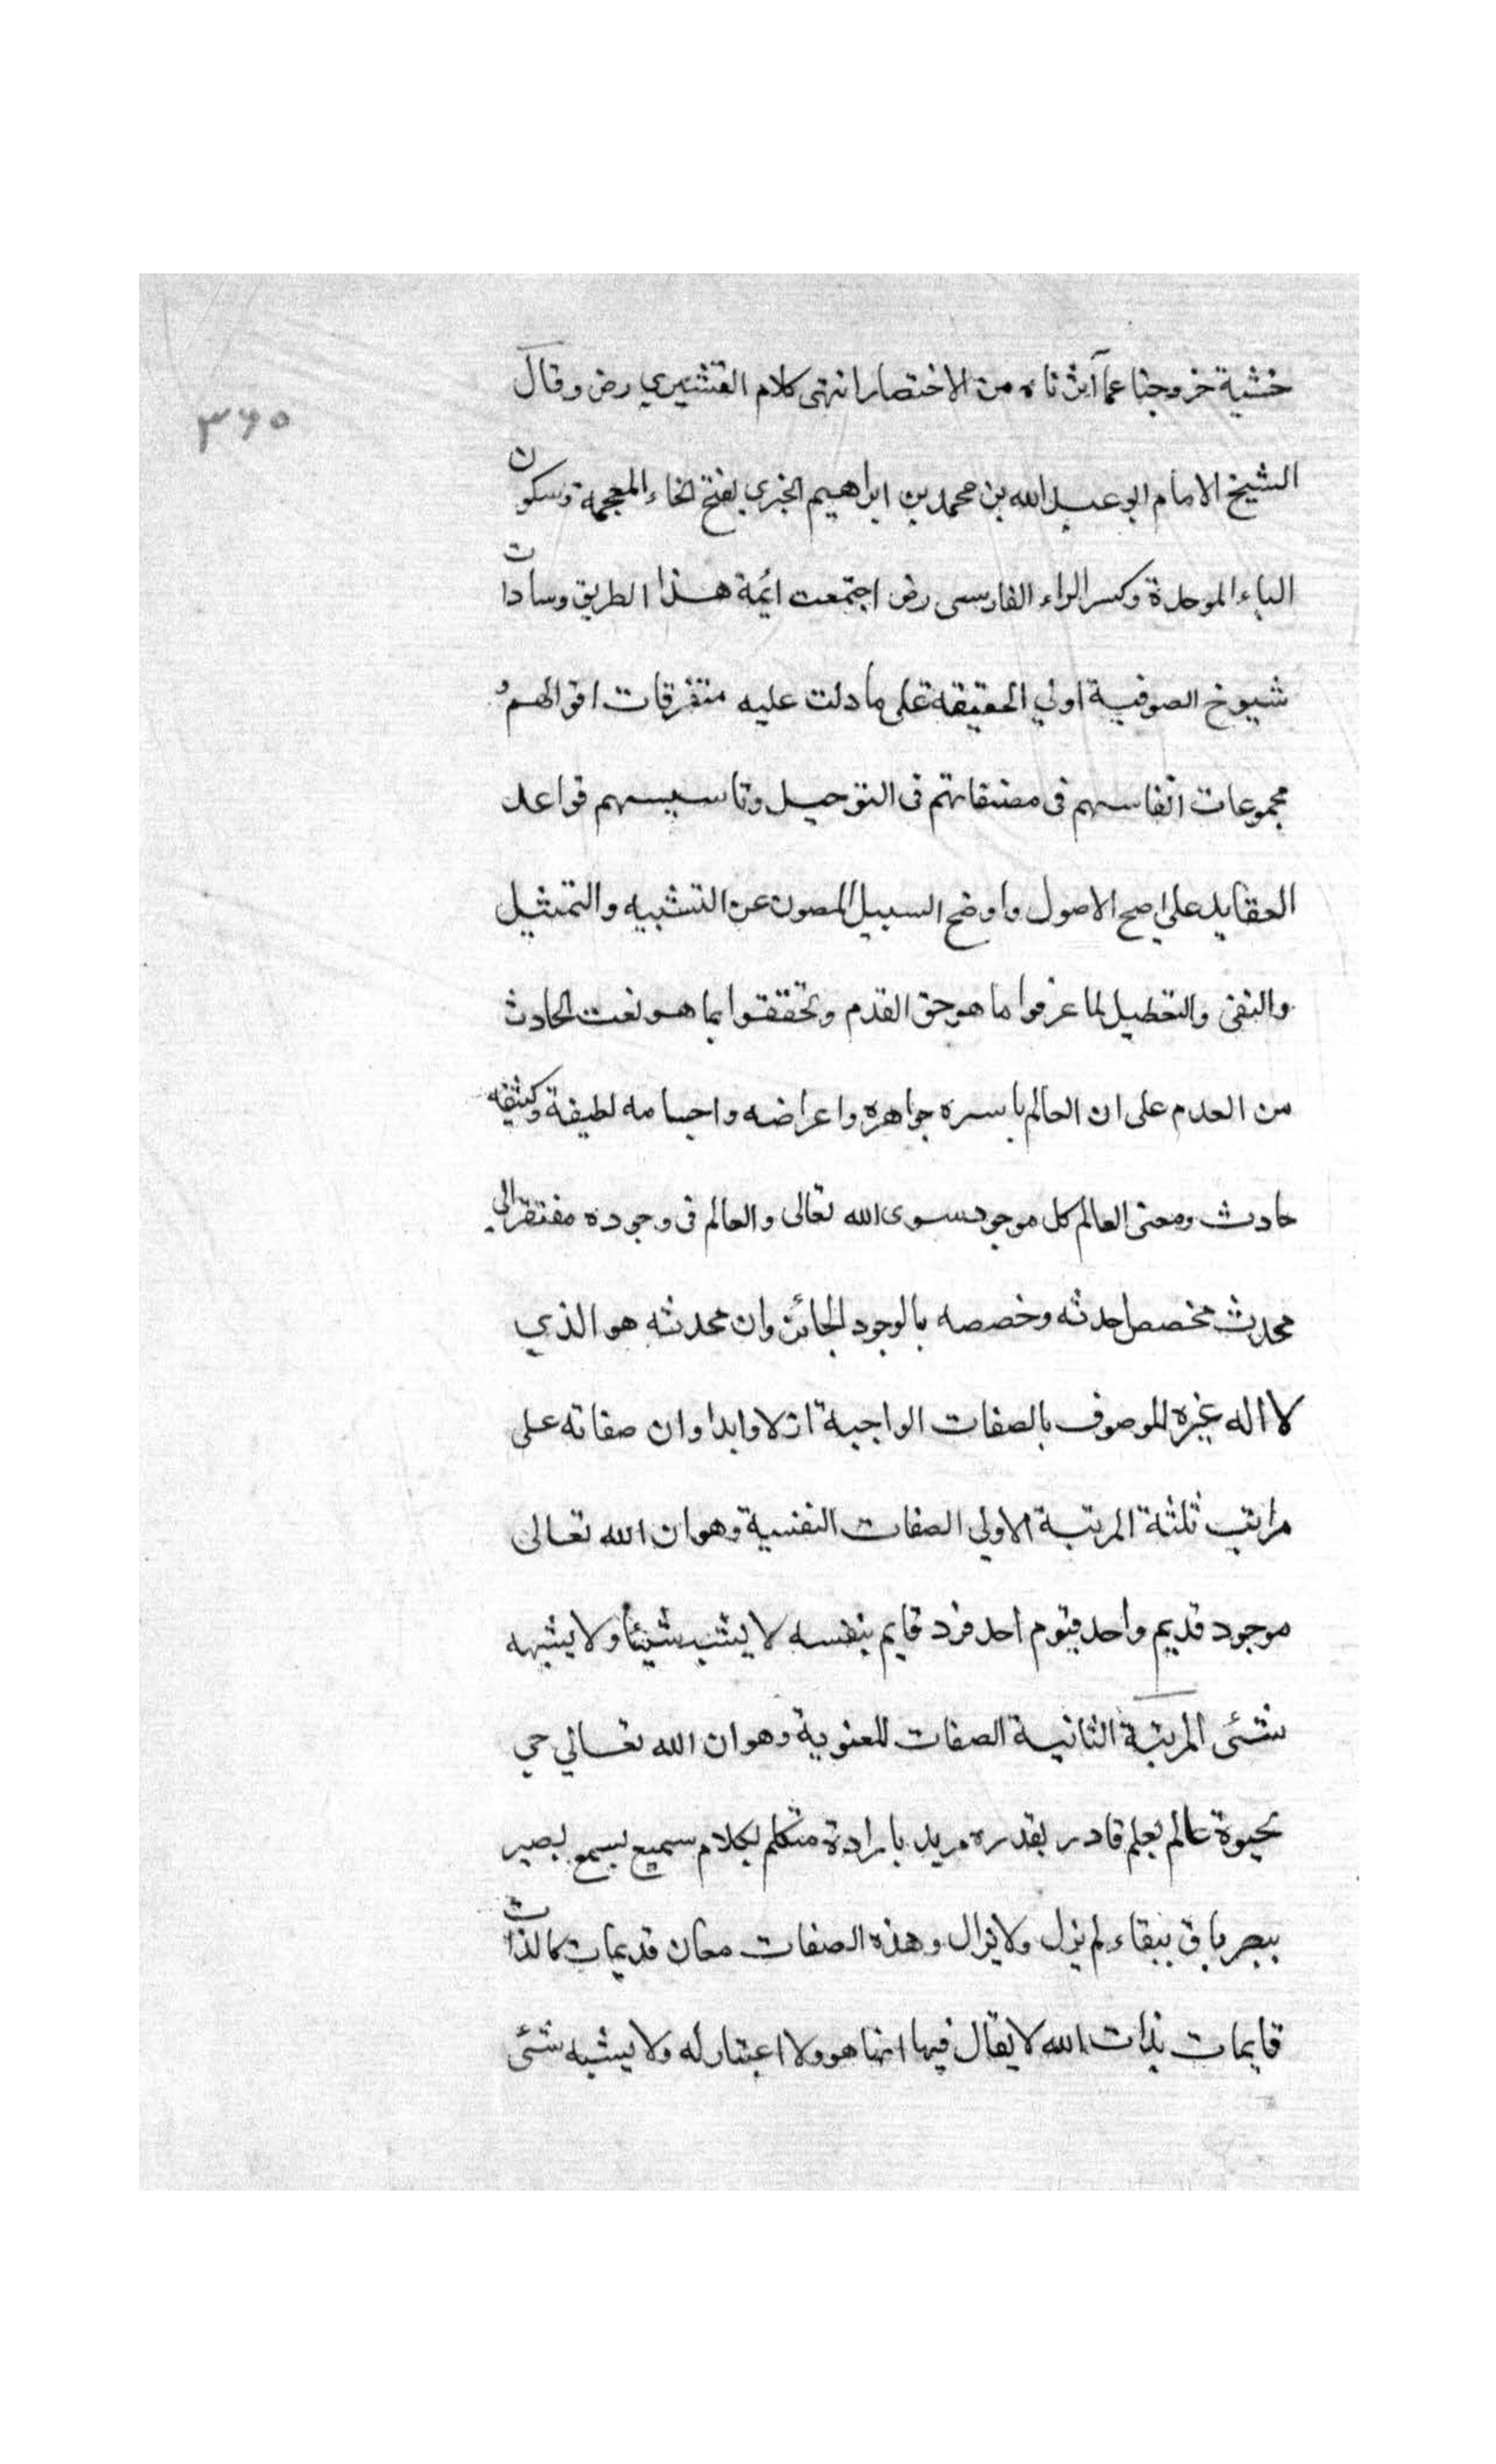 ٣٦٥
خشية خروجنا عما آثرناه من الاختصار انتهى كلام القشيري رض وقال
الشيخ الامام ابو عبد الله بن محمد بن ابراهيم الخبري بفتح الخاء المعجمة وسكون
الباء الموحدة وكسر الراء الفارسى رض اجتمعت ائمة هذا الطريق وسادات
شيوخ الصوفية اولي الحقيقة على ما دلت عليه متفرقات اقوالهم و
مجموعات انفاسهم فى مصنفاتهم فى التوحيد وتاسيسهم قواعد
العقايد على اصح الاصول واوضح السبيل المصون عن التشبيه والتمثيل
والنفى والتعطيل لما عرفوا ما هو حق القدم وتحققوا بما هو نعت الحادث
من العدم على ان العالم باسره جواهره واعراضه واجسامه لطيفة وكثيفه
حادث ومعنى العالم كل موجود سوى الله تعالى والعالم فى وجوده مفتقر الى
محدث مخصص احدثه وخصصه بالوجود الجائز وان محدثه هو الذي
لا اله غيره الموصوف بالصفات الواجبة ازلا وابدا وان صفاته على
مراتب ثلثة المرتبة الاولي الصفات النفسية وهو ان الله تعالى
موجود قديم واحد قيوم احد فرد قايم بنفسه لا يشبه شيئا ولا يشبهه
شئى المرتبة الثانية الصفات المعنوية وهو ان الله تعالي حي
بحيوة عالم بعلم قادر بقدره مريد بارادة متكلم بكلام سميع بسمع بصير
ببصر باق ببقاء لم يزل ولا يزال وهذه الصفات معان قديمات كالذات
قايمات بذات الله لا يقال فيها انها هو ولا اعتبار له ولا يشبه شئى